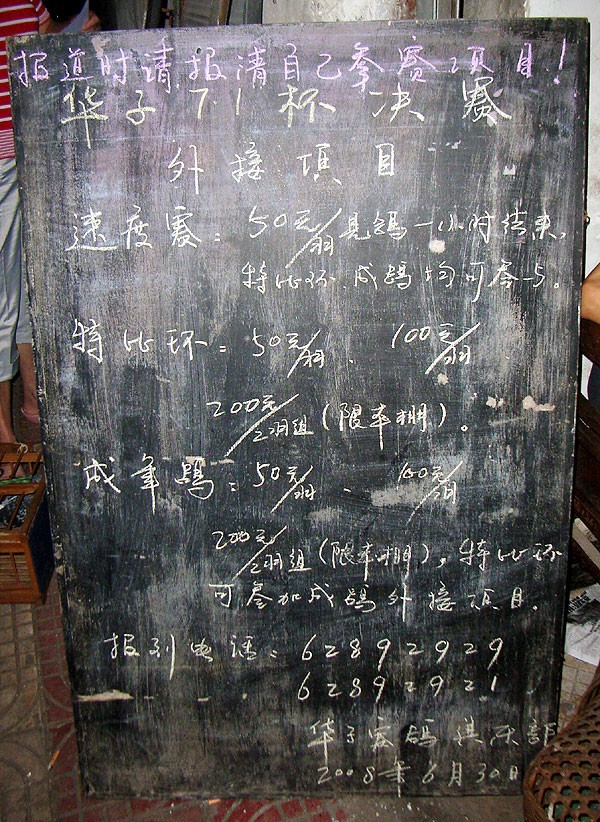 报道时请报清自己参赛项目！
华子7.1杯决赛
外接項目
速度赛：50元/羽見鸽一小时结束，
特比环、成鸽均可参与。
特比环：50元/羽、100元/羽
200元/2羽组（限本棚）。
成年鸽：50元/羽、100元/羽
200元/2羽组（限本棚）。特比环
可参加成鸽外接项目。
报到电话：62892929
62892921
华子赛鸽俱乐部
2008年6月30日